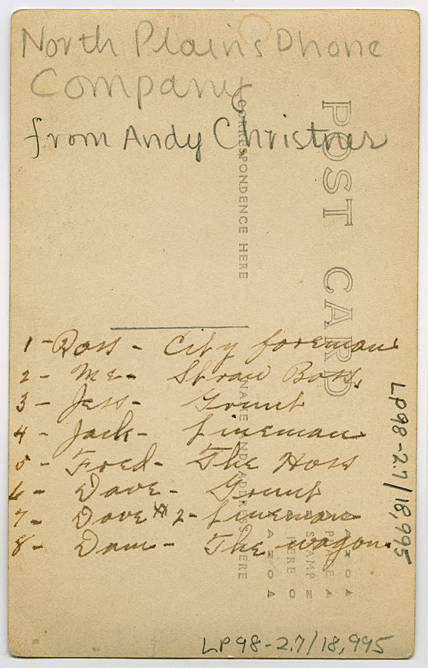 North Plains Phone
Company
from Andy Christner
1 - Ross - City foreman
2 - Me - Straw Boss.
3 - Jess - Grunt
4 - Jack - Lineman
5 - Fred - The Hoss
6 - Dave - Grunt
7 - Dave #2 - Lineman
8 - Dam - The wagon.
POST CARD
CORRESPONDENCE HERE
NAME AND ADDRESS HERE
PLACE
STAMP
HERE
LP98-2.7/18,995
LP98-2.7/18,995